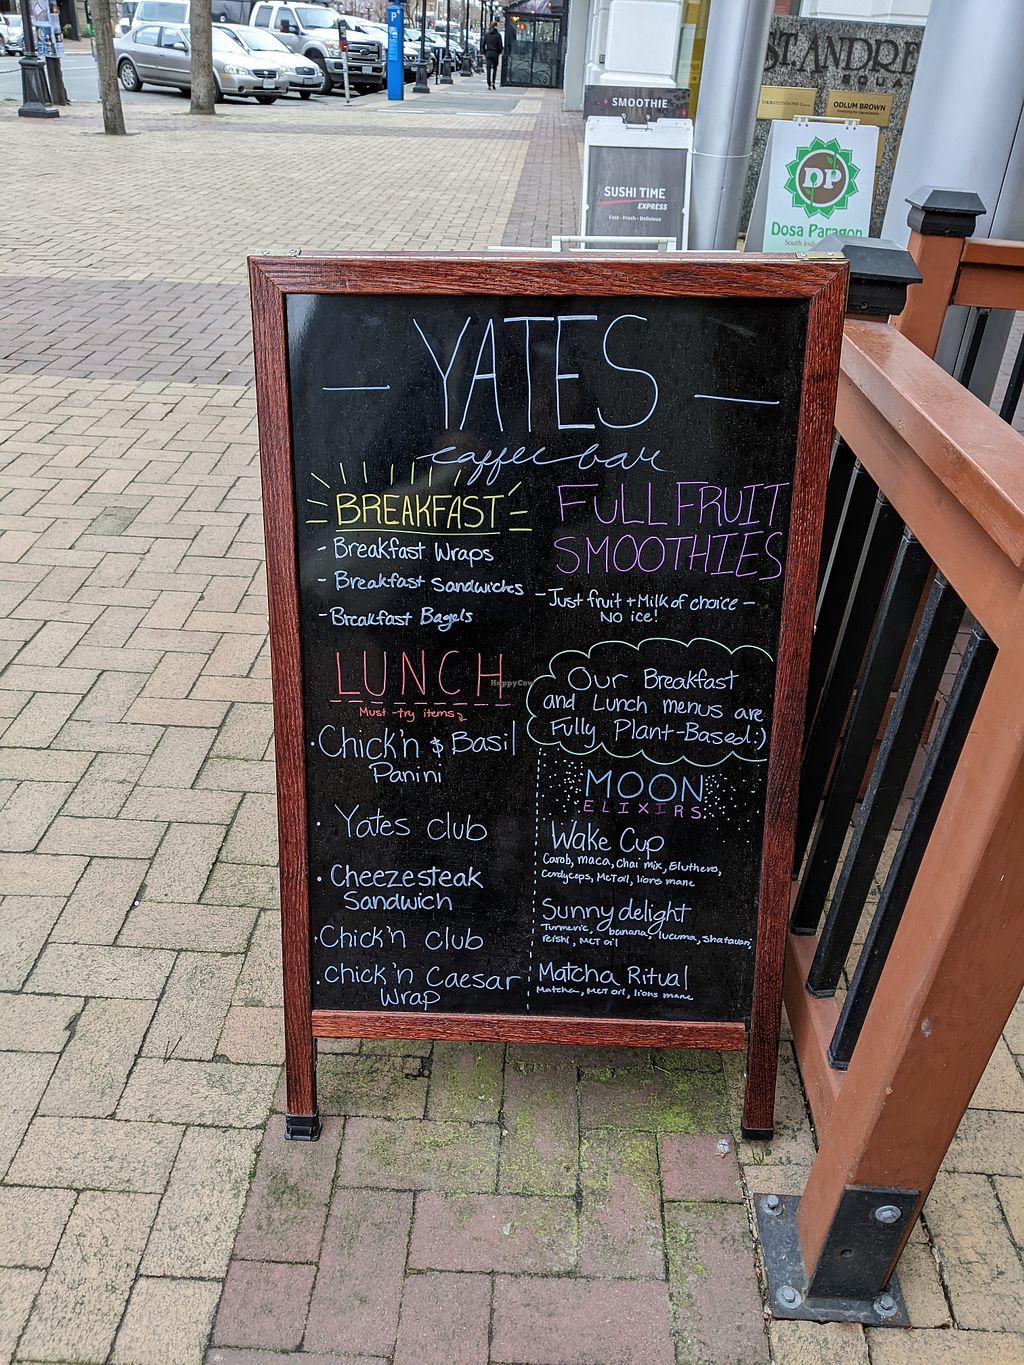 P
ST. ANDRE
ODLUM BROWN
+ SMOOTHIE
SUSHI TIME
EXPRESS
Fast - Fresh - Delicious
DP
Dosa Paragon
South Indi
— YATES —
coffee bar
BREAKFAST
- Breakfast Wraps
- Breakfast Sandwiches
- Breakfast Bagels
LUNCH
Must-try items
· Chick'n & Basil
Panini
· Yates club
· Cheezesteak
Sandwich
· Chick'n club
· chick'n Caesar
Wrap
FULL FRUIT
SMOOTHIES
- Just fruit + Milk of choice -
NO ice!
Our Breakfast
and Lunch menus are
Fully Plant-Based:)
MOON
ELIXIRS
Wake Cup
Carob, maca, Chai mix, Eluthero,
Cordyceps, MCT oil, lions mane
Sunny delight
Turmeric, banana, lucuma, shatavari,
reishi, MCT oil
Matcha Ritual
Matcha, MCT oil, lions mane
HappyCow